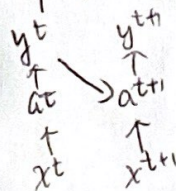 y^t y^{t+1}
a^t a^{t+1}
x^t x^{t+1}